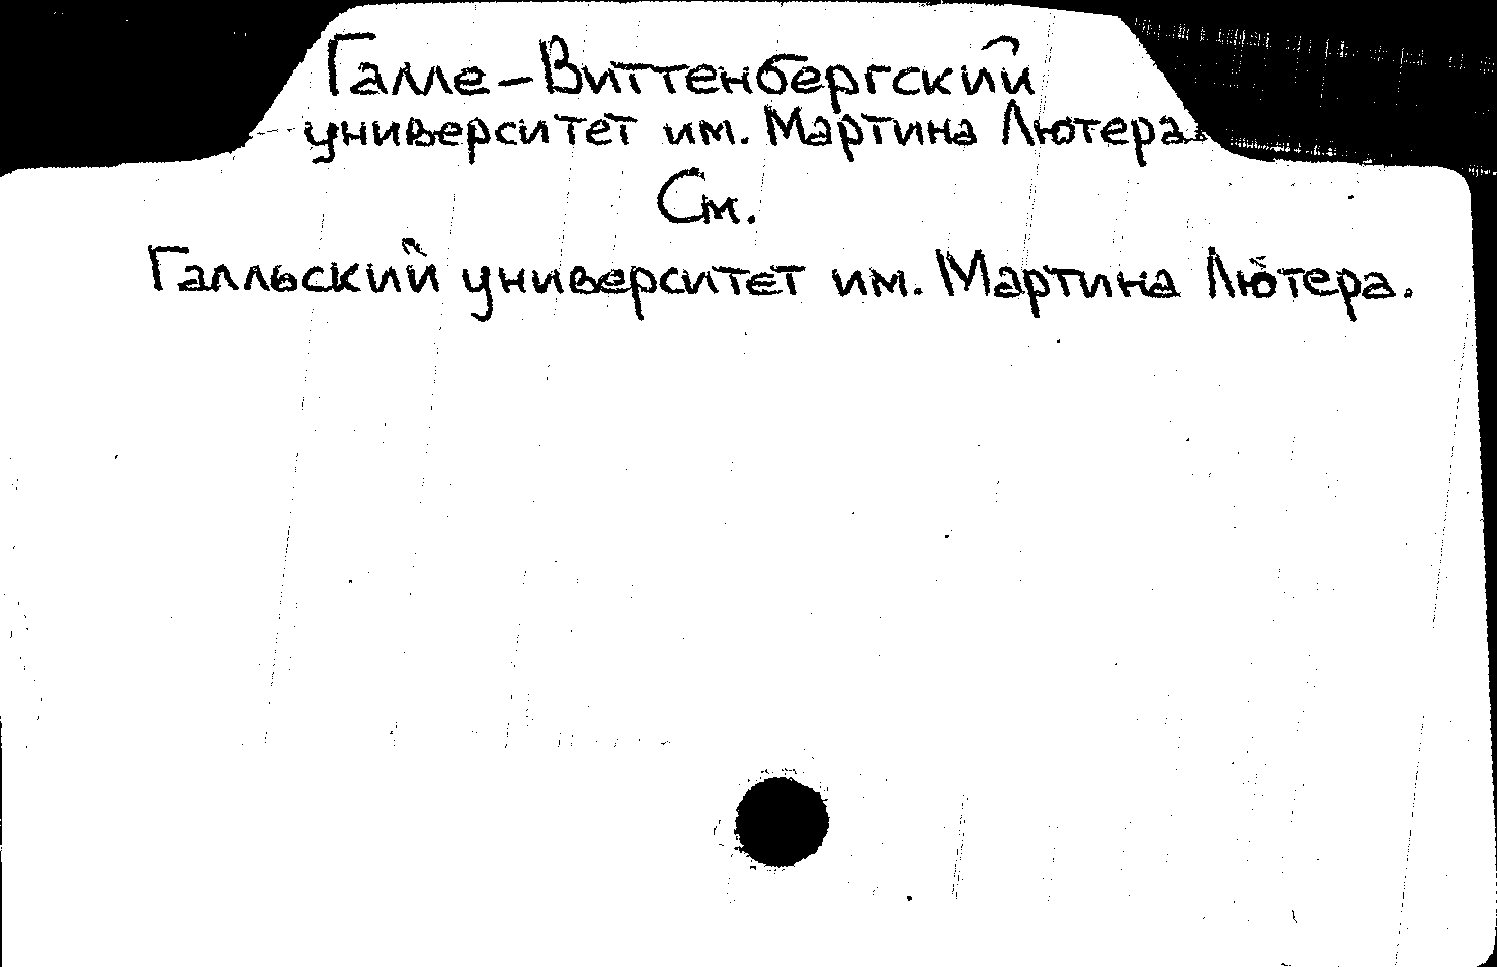 Галле-Виттенбергский
университет им. Мартина Лютера
См.
Галльский университет им. Мартина Лютера.